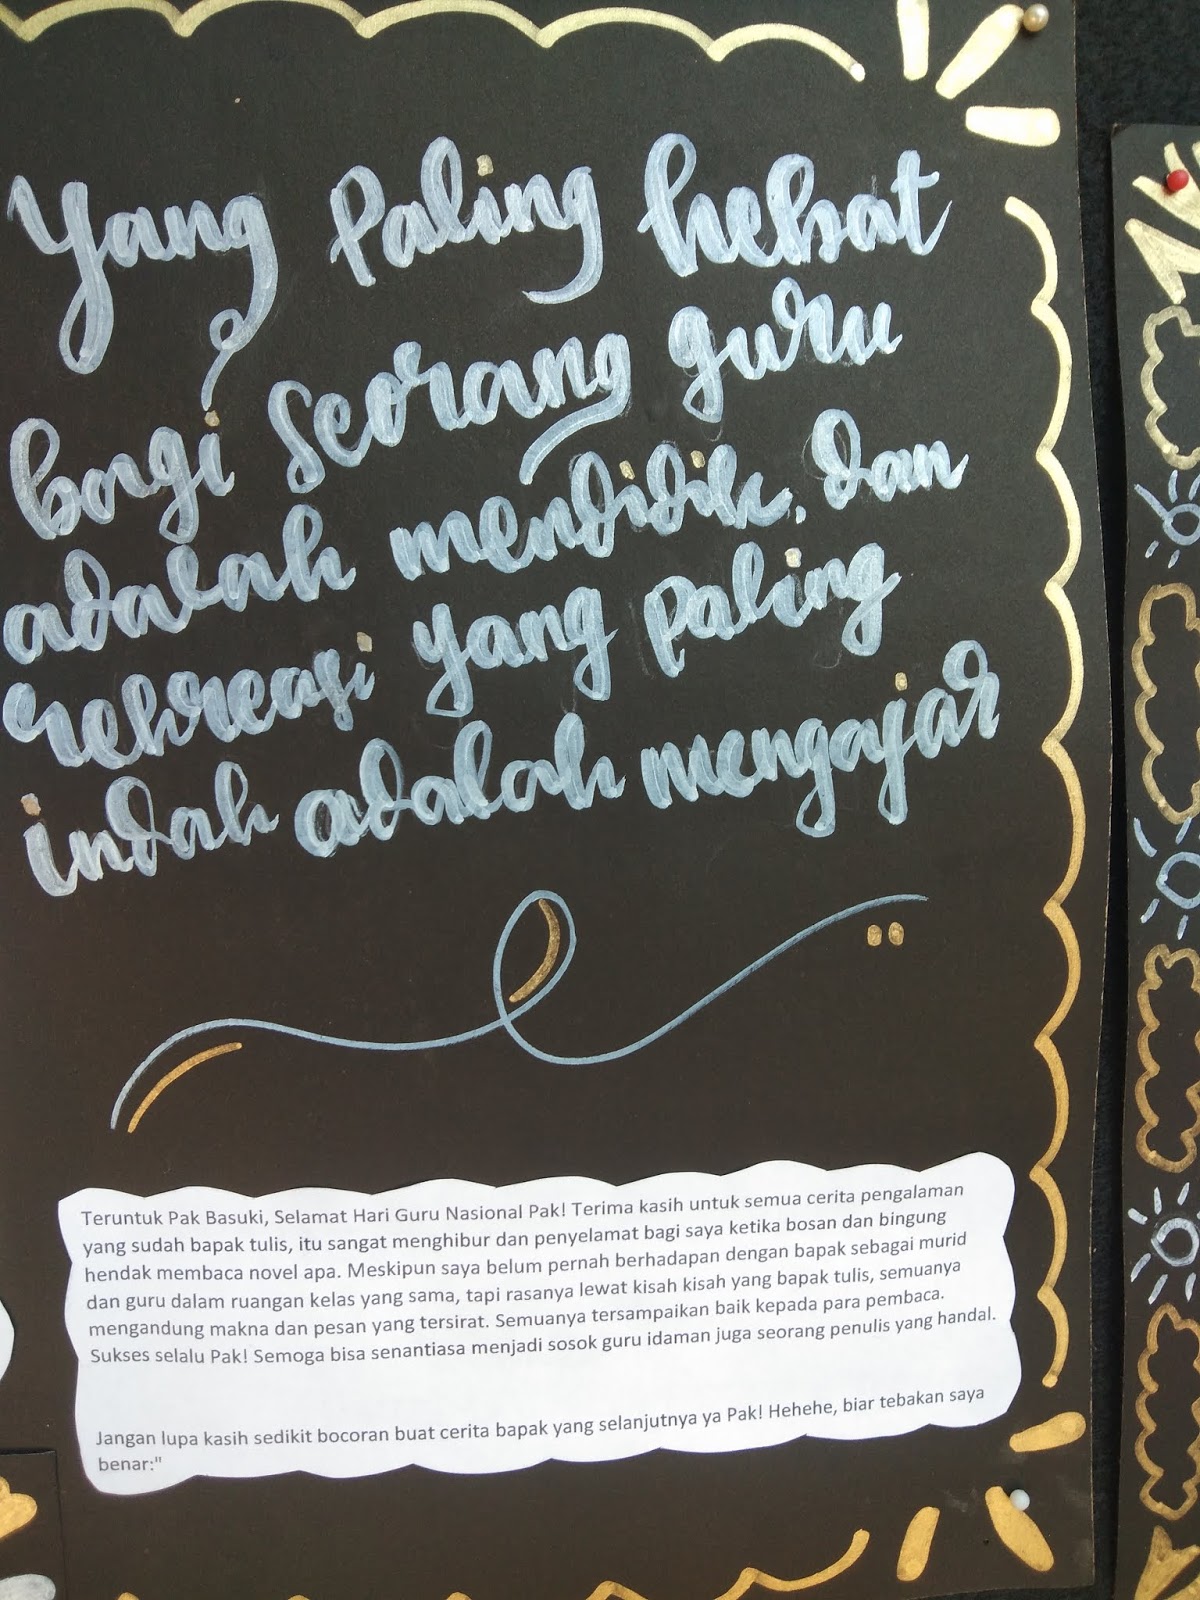 Yang Paling hebat
bagi Seorang guru
adalah mendidik. dan
rekreasi yang paling
indah adalah mengajar
Teruntuk Pak Basuki, Selamat Hari Guru Nasional Pak! Terima kasih untuk semua cerita pengalaman
yang sudah bapak tulis, itu sangat menghibur dan penyelamat bagi saya ketika bosan dan bingung
hendak membaca novel apa. Meskipun saya belum pernah berhadapan dengan bapak sebagai murid
dan guru dalam ruangan kelas yang sama, tapi rasanya lewat kisah kisah yang bapak tulis, semuanya
mengandung makna dan pesan yang tersirat. Semuanya tersampaikan baik kepada para pembaca.
Sukses selalu Pak! Semoga bisa senantiasa menjadi sosok guru idaman juga seorang penulis yang handal.
Jangan lupa kasih sedikit bocoran buat cerita bapak yang selanjutnya ya Pak! Hehehe, biar tebakan saya
benar:"